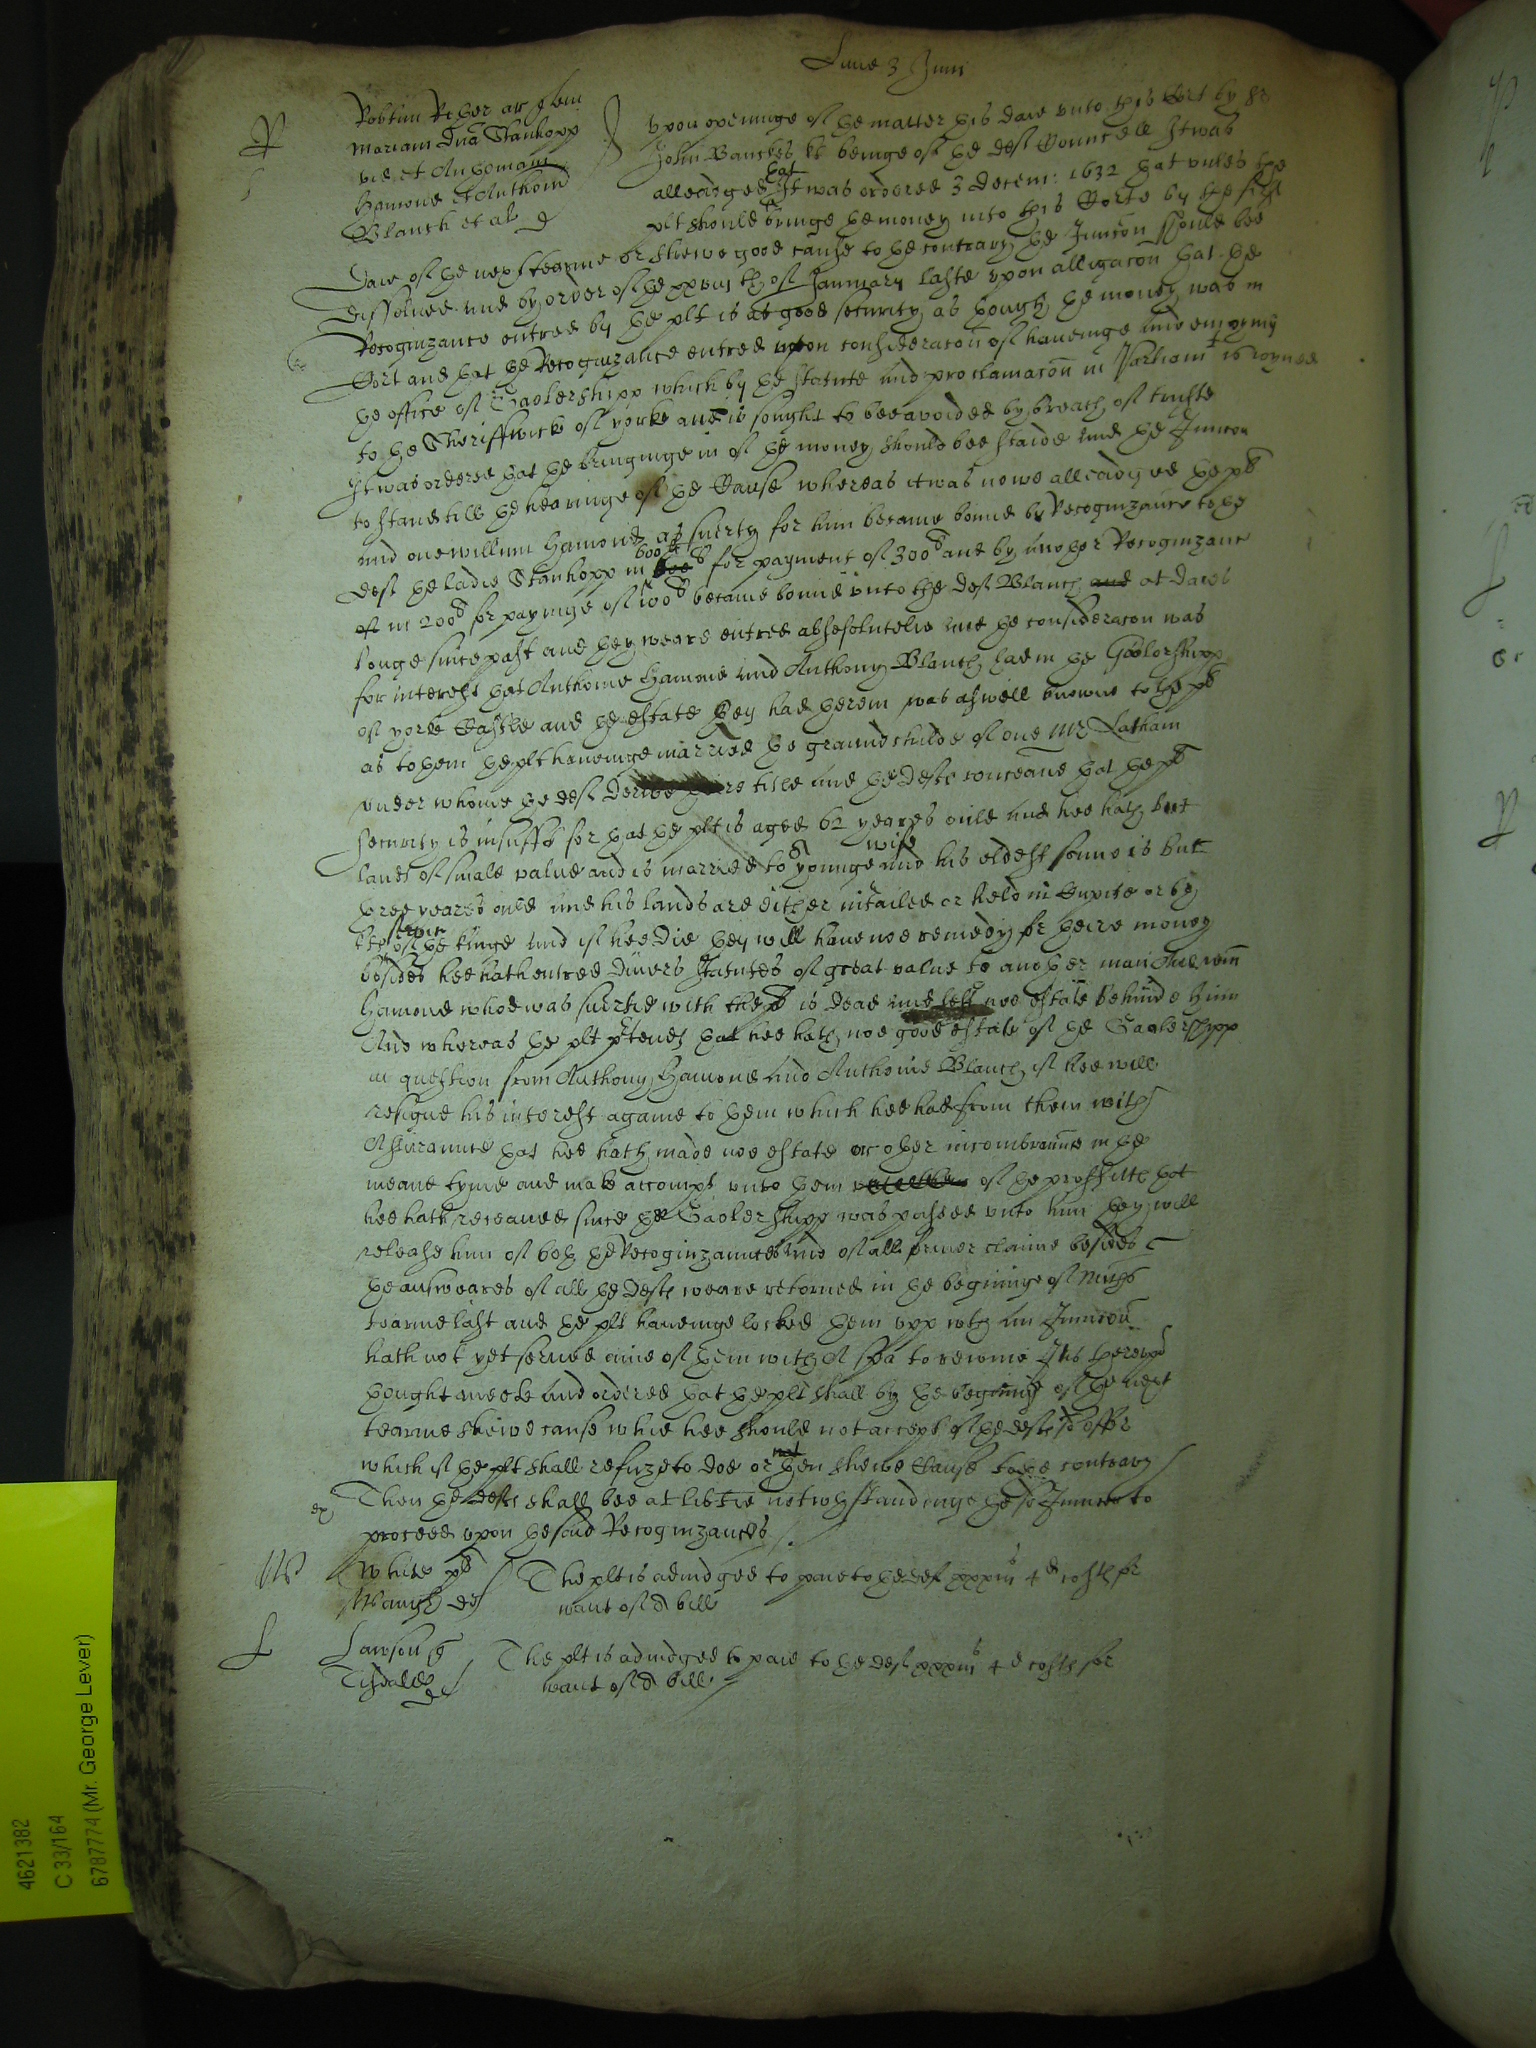 Lune 3 Junij
R
Robtum Reper ar quer
Mariam Dnã Stanhopp
vid et Anthoniam
Hamond et Anthoni
Blanch et al d
Upon openinge of the matter this daie unto this Cort by Sr
John Banckes kt beinge of the deft Councell It was
alleadged that It was ordered 3 Decem: 1632 that unles the
plt should bringe the money into this Corte by the first
Daie of the next tearme or shewe good cause to the contrary the Junccon should bee
dissolued and by order of the xxviijth of January laste upon alligacon that the
Recognizance entred by the plt is as good security as though the money was in
Cort and that the Recognizance entred upon consideracon of haueinge and enjoying
the office of Gaolershipp which by the statute and proclamacon in Parliamt is ioyned
to the Sheriffwick of yorke and is sought to bee avoided by breach of truste
It was ordered that the bringinge in of the money should bee staide and the Junccon
to stand till the hearinge of the Cause whereas it was nowe alleadged the plt
and one willim Hamond as suerty for him became bound by Recognizance to the
deft the ladie Stanhopp in 600li for payment of 300li and by another Recognizance
of in 200li for payinge of 100li became bound unto the deft Blanch and at daies
longe since past and they weare entred absolutelie and the consideracon was
for interest that Anthonie Hamond and Anthony Blanch had in the Gaolorshipp
of yorke Castle and the estate they had therein was aswell knowne to the plt
as to them the plt haueinge married the graundchilde of one Mr Latham
under whome the deft derive theire title and the defts conceaue that the plts
security is insufft for that the plt is aged 62 yeares oulde and hee hath but
lands of smale value and is married to a younge wife and his eldest sonne is but
three yeares ould and his lands are either intailed or held in Capite or by
kts service of the kinge and if hee die they will haue noe remedy for theire money
besides hee hath entred divers statutes of great value to another man And willm
Hamond whoe was suertie with the plt is dead and left noe estate behinde him
And whereas the plt ptends that hee hath noe good estate of the Gaolershipp
in question from Anthony Hamond and Anthonie Blanch if hee will
resigne his interest againe to them which hee had from them with
Assurannce that hee hath made noe estate or other incombrannce in the
meane tyme and make accompt unto them of the proffitts that
hee hath receaued since the Gaolershipp was passed unto him they will
release him of both the Recognizannces and of all former claime besides
the answeares of all the defts weare retorned in the begininge of Michs
tearme last and the plt haueinge locked them upp wth an Junccon
hath not yet serued anie of them with A spa to reioyne It is thereupon
thought meete and ordered that the plt shall by the begininge of the next
tearme shewe cause whie hee should not accept of the defts sd offer
which if the plt shall refuze to doe or not then shewe Cause to the contrary
ex Then the defts shall bee at libtie notwthstandinge the sd Junccon to
proceed upon the said Recognizances
W
White plt
Waugh def
The plt is adiudged to paie to the def xxxiijs 4d costs for
want of A bill
L
Lawson q
Tisdale d
The plt is adiudged to paie to the deft xxxiijs 4d costs for
want of A bill
4621382
C 33/164
6787774 (Mr. George Lever)